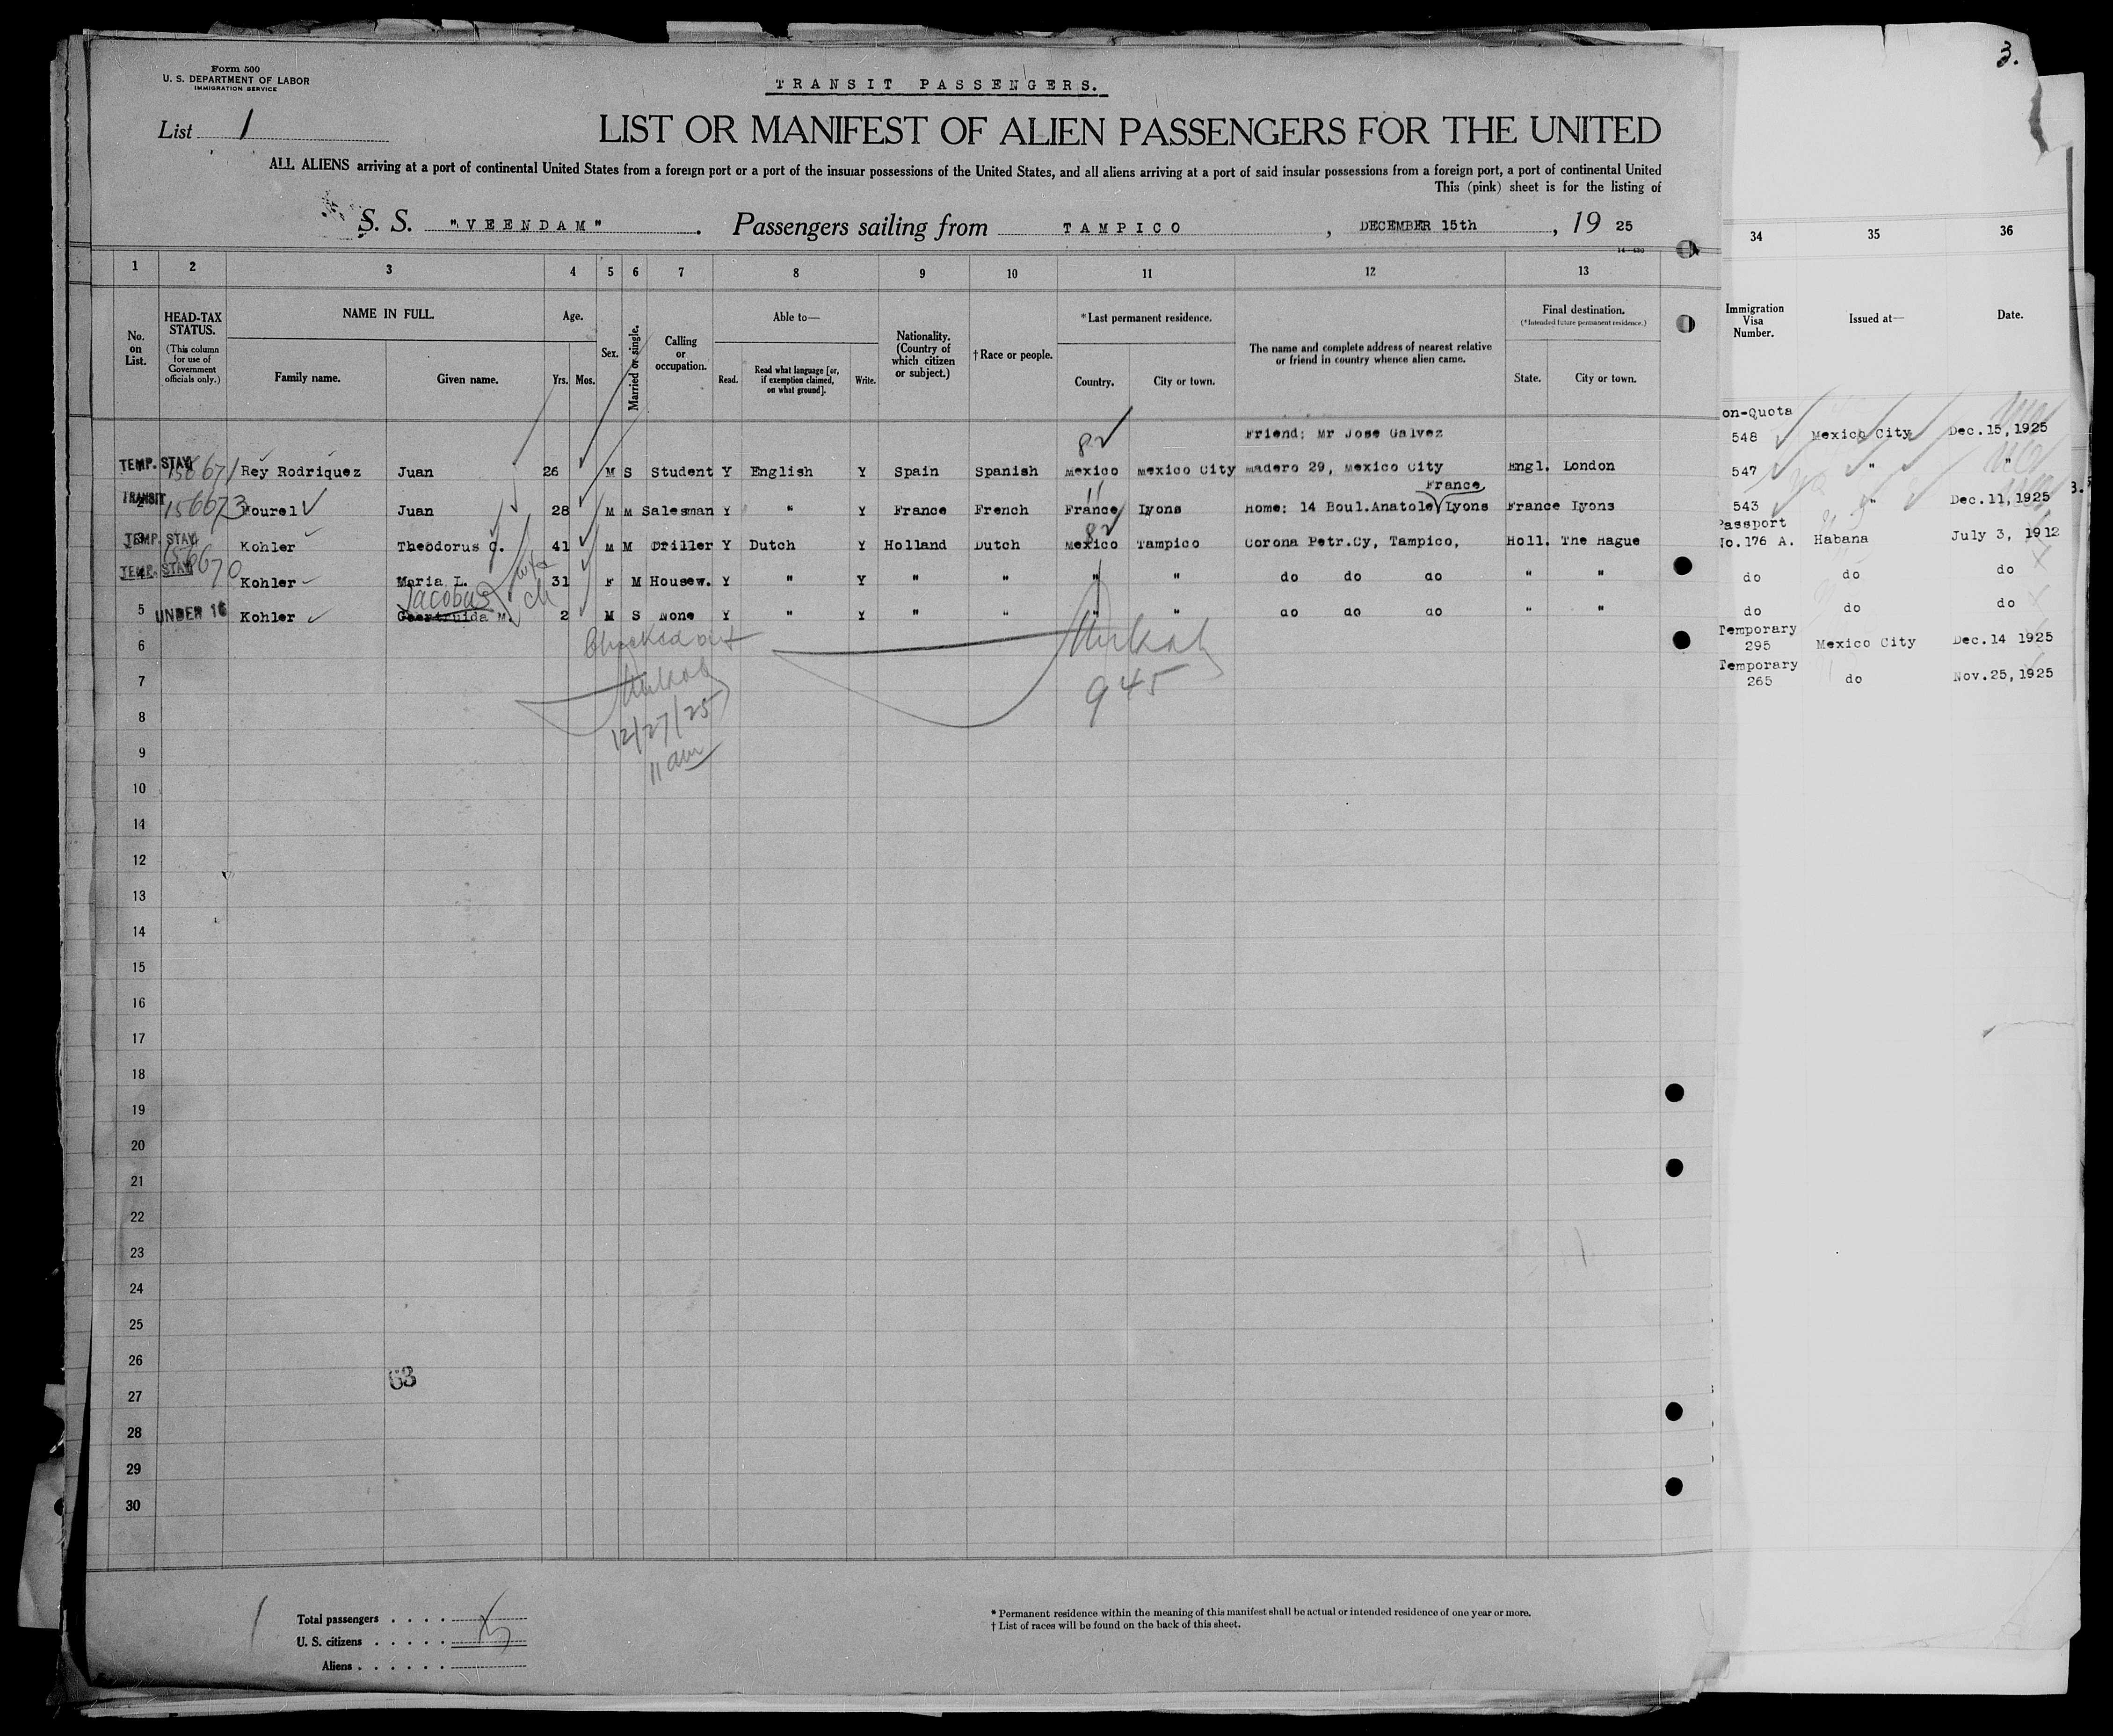 Form 500
U. S. DEPARTMENT OF LABOR
IMMIGRATION SERVICE
TRANSIT PASSENGERS.
3.
List 1
LIST OR MANIFEST OF ALIEN PASSENGERS FOR THE UNITED
ALL ALIENS arriving at a port of continental United States from a foreign port or a port of the insular possessions of the United States, and all aliens arriving at a port of said insular possessions from a foreign port, a port of continental United
This (pink) sheet is for the listing of
S. S. "VEENDAM" . Passengers sailing from TAMPICO , DECEMBER 15th , 19 25
1 2 3 4 5 6 7 8 9 10 11 12 13 34 35 36
No. on List.
HEAD-TAX STATUS.
(This column for use of Government officials only.)
NAME IN FULL.
Family name. Given name.
Age.
Yrs. Mos.
Sex.
Married or single.
Calling or occupation.
Able to—
Read. Read what language [or, if exemption claimed, on what ground]. Write.
Nationality. (Country of which citizen or subject.)
†Race or people.
*Last permanent residence.
Country. City or town.
The name and complete address of nearest relative or friend in country whence alien came.
Final destination.
(*Intended future permanent residence.)
State. City or town.
Immigration Visa Number.
Issued at—
Date.
82
Friend: Mr Jose Galvez
TEMP. STAY 156671 Rey Rodriquez Juan 26 M S Student Y English Y Spain Spanish Mexico Mexico City Madero 29, Mexico City Engl. London
France
TRANSIT 2 156673 Mourel Juan 28 M M Salesman Y " Y France French France Lyons Home: 14 Boul.Anatole Lyons France Lyons
82
TEMP. STAY Kohler Theodorus C. 41 M M Driller Y Dutch Y Holland Dutch Mexico Tampico Corona Petr.Cy, Tampico, Holl. The Hague
TEMP. STAY 156670 Kohler Maria L. 31 F M Housew. Y " Y " " " " do do do " "
Jacobus
5 UNDER 16 Kohler Geertruida M. 2 M S None Y " Y " " " " do do do " "
on-Quota
548 Mexico City Dec.15,1925
547 " "
543 " Dec.11,1925
Passport
No.176 A. Habana July 3, 1912
do do do
do do do
Temporary
295 Mexico City Dec.14 1925
Temporary
265 do Nov.25,1925
Checked out
12/27/25
11 am
945
6
7
8
9
10
14
12
13
14
15
16
17
18
19
20
21
22
23
24
25
26
63
27
28
29
30
Total passengers . . . . 5
U. S. citizens . . . . .
Aliens . . . . . .
* Permanent residence within the meaning of this manifest shall be actual or intended residence of one year or more.
† List of races will be found on the back of this sheet.